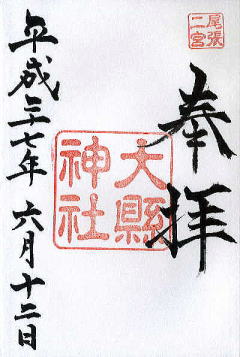 尾張
二宮
奉拝
大縣
神社
平成二十七年六月十二日